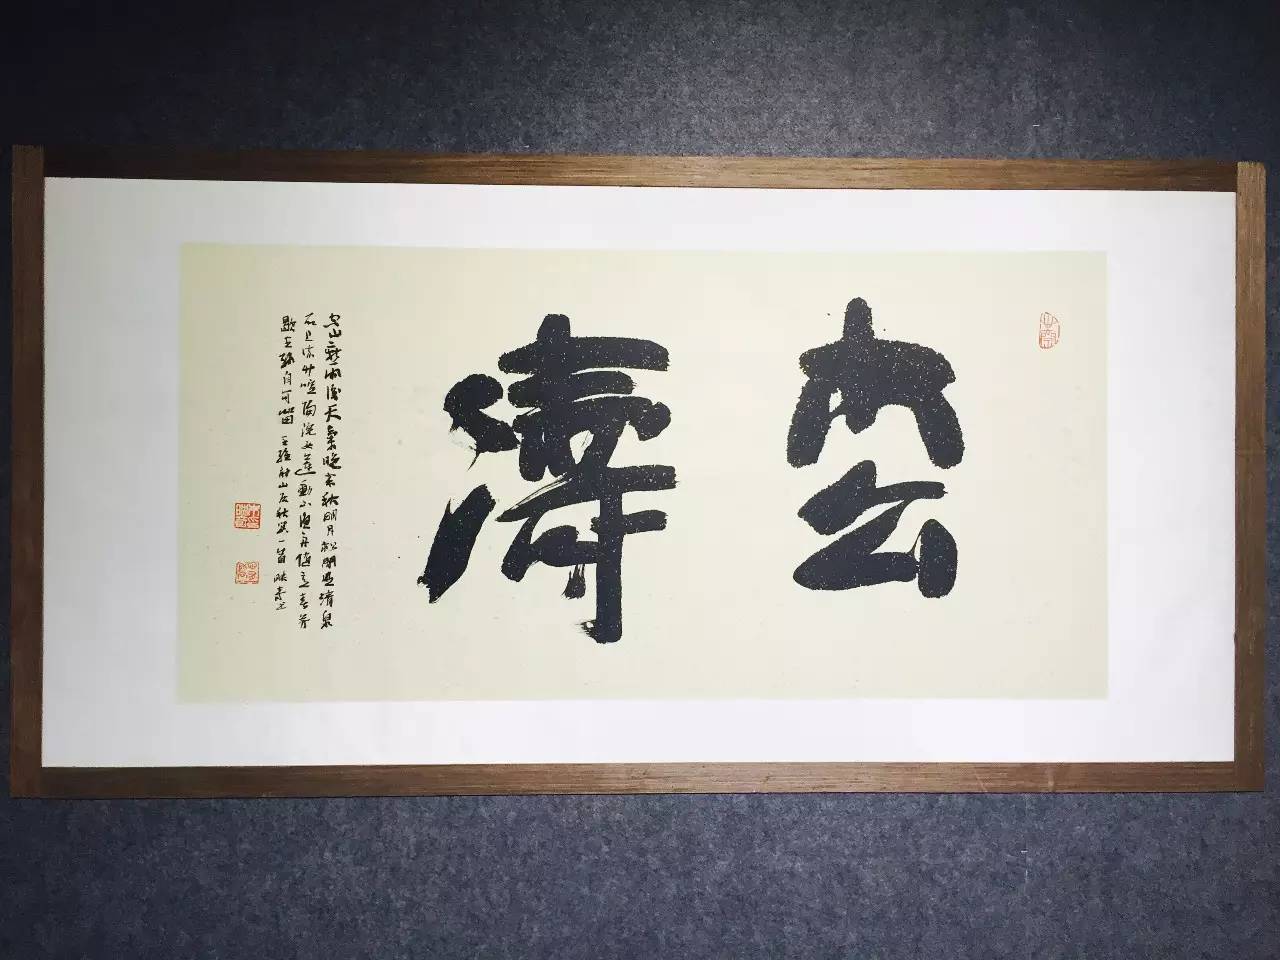 枩涛
空山新雨後天氣晚来秋明月松間照清泉
石上流竹喧歸浣女蓮動下漁舟隨意春芳
歇王孫自可留 王維詩山居秋暝一首